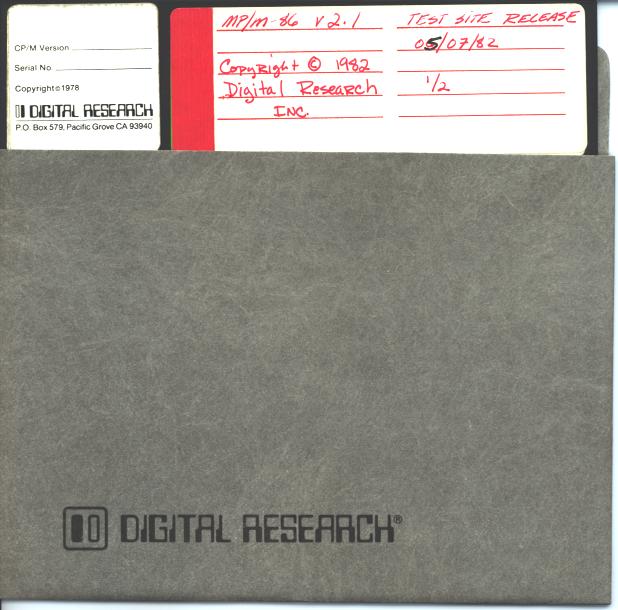 CP/M Version
Serial No
Copyright©1978
DIGITAL RESEARCH
P.O. Box 579, Pacific Grove CA 93940
MP/M-86 V 2.1
Copyright © 1982
Digital Research
INC.
TEST SITE RELEASE
05/07/82
1/2
DIGITAL RESEARCH®